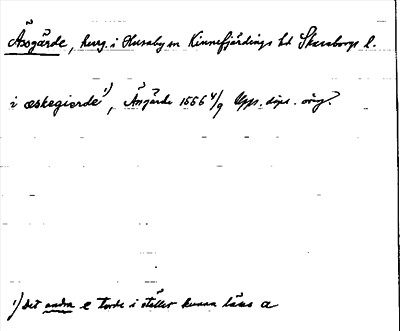 Åsgårde, herg. i Husaby sn Kinnefjärdings hd Skaraborgs l.
i æskegierde¹), Åsgårde 1556 4/9 Upps. dipl. orig.
¹) det andra e torde i stället kunna läsas a